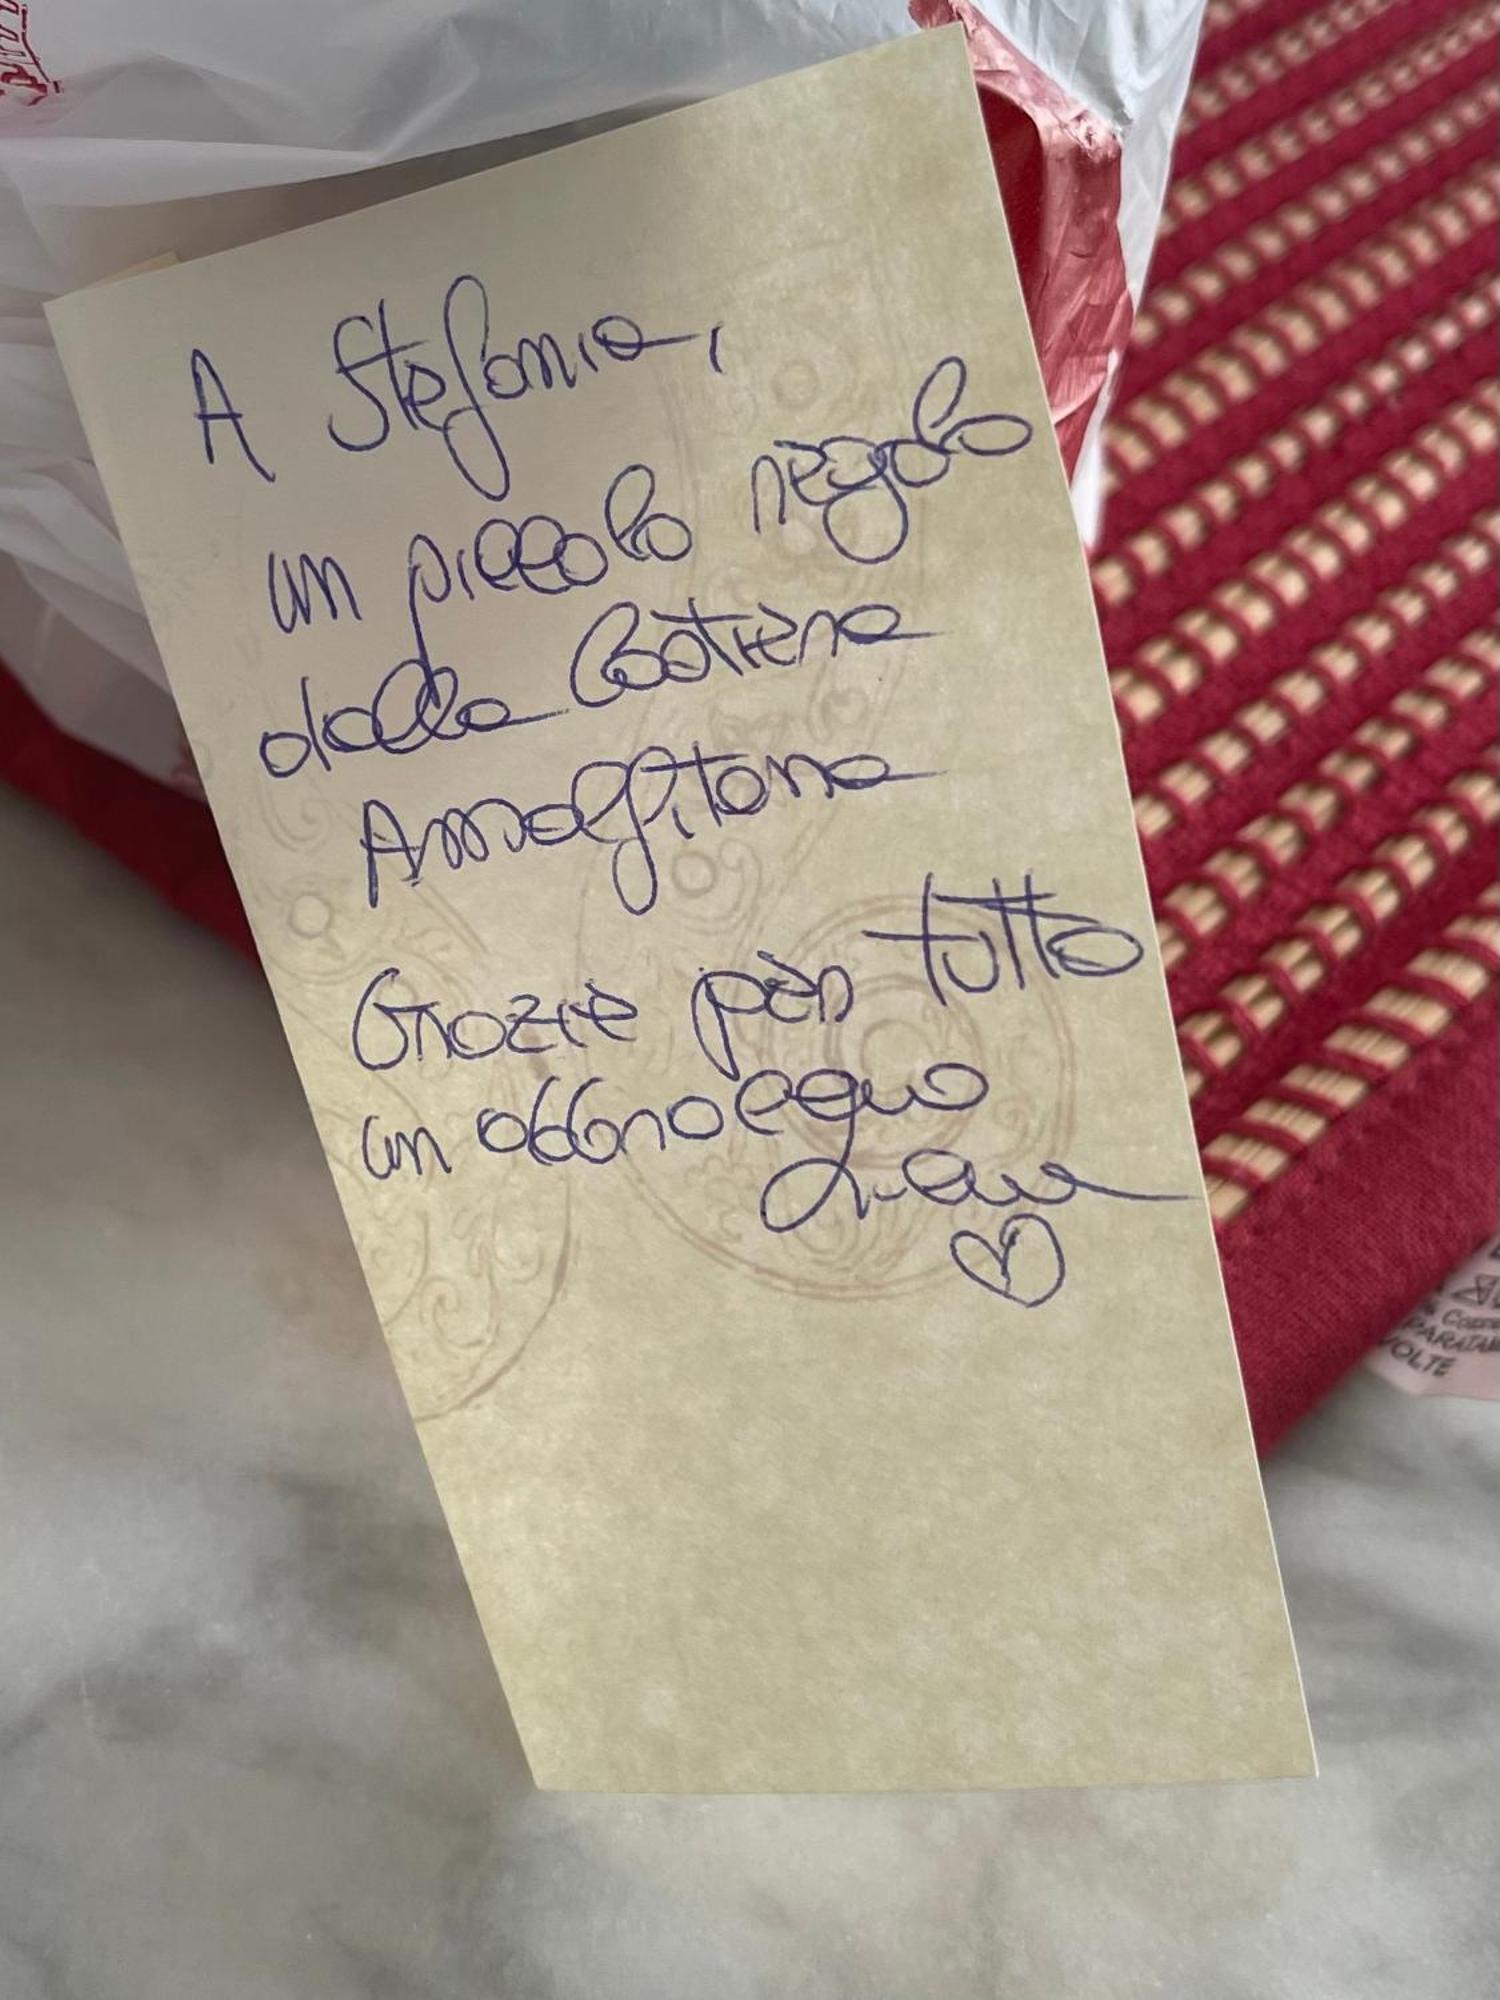 A Stefania,
un piccolo regalo
dalla Costiera
Amalfitana
Grazie per tutto
un abbraccio
VOLTE